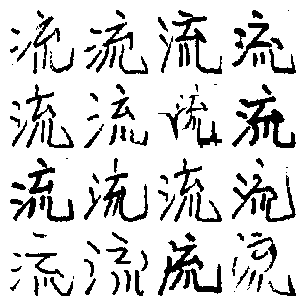 流流流流
流流流流
流流流流
流流流流